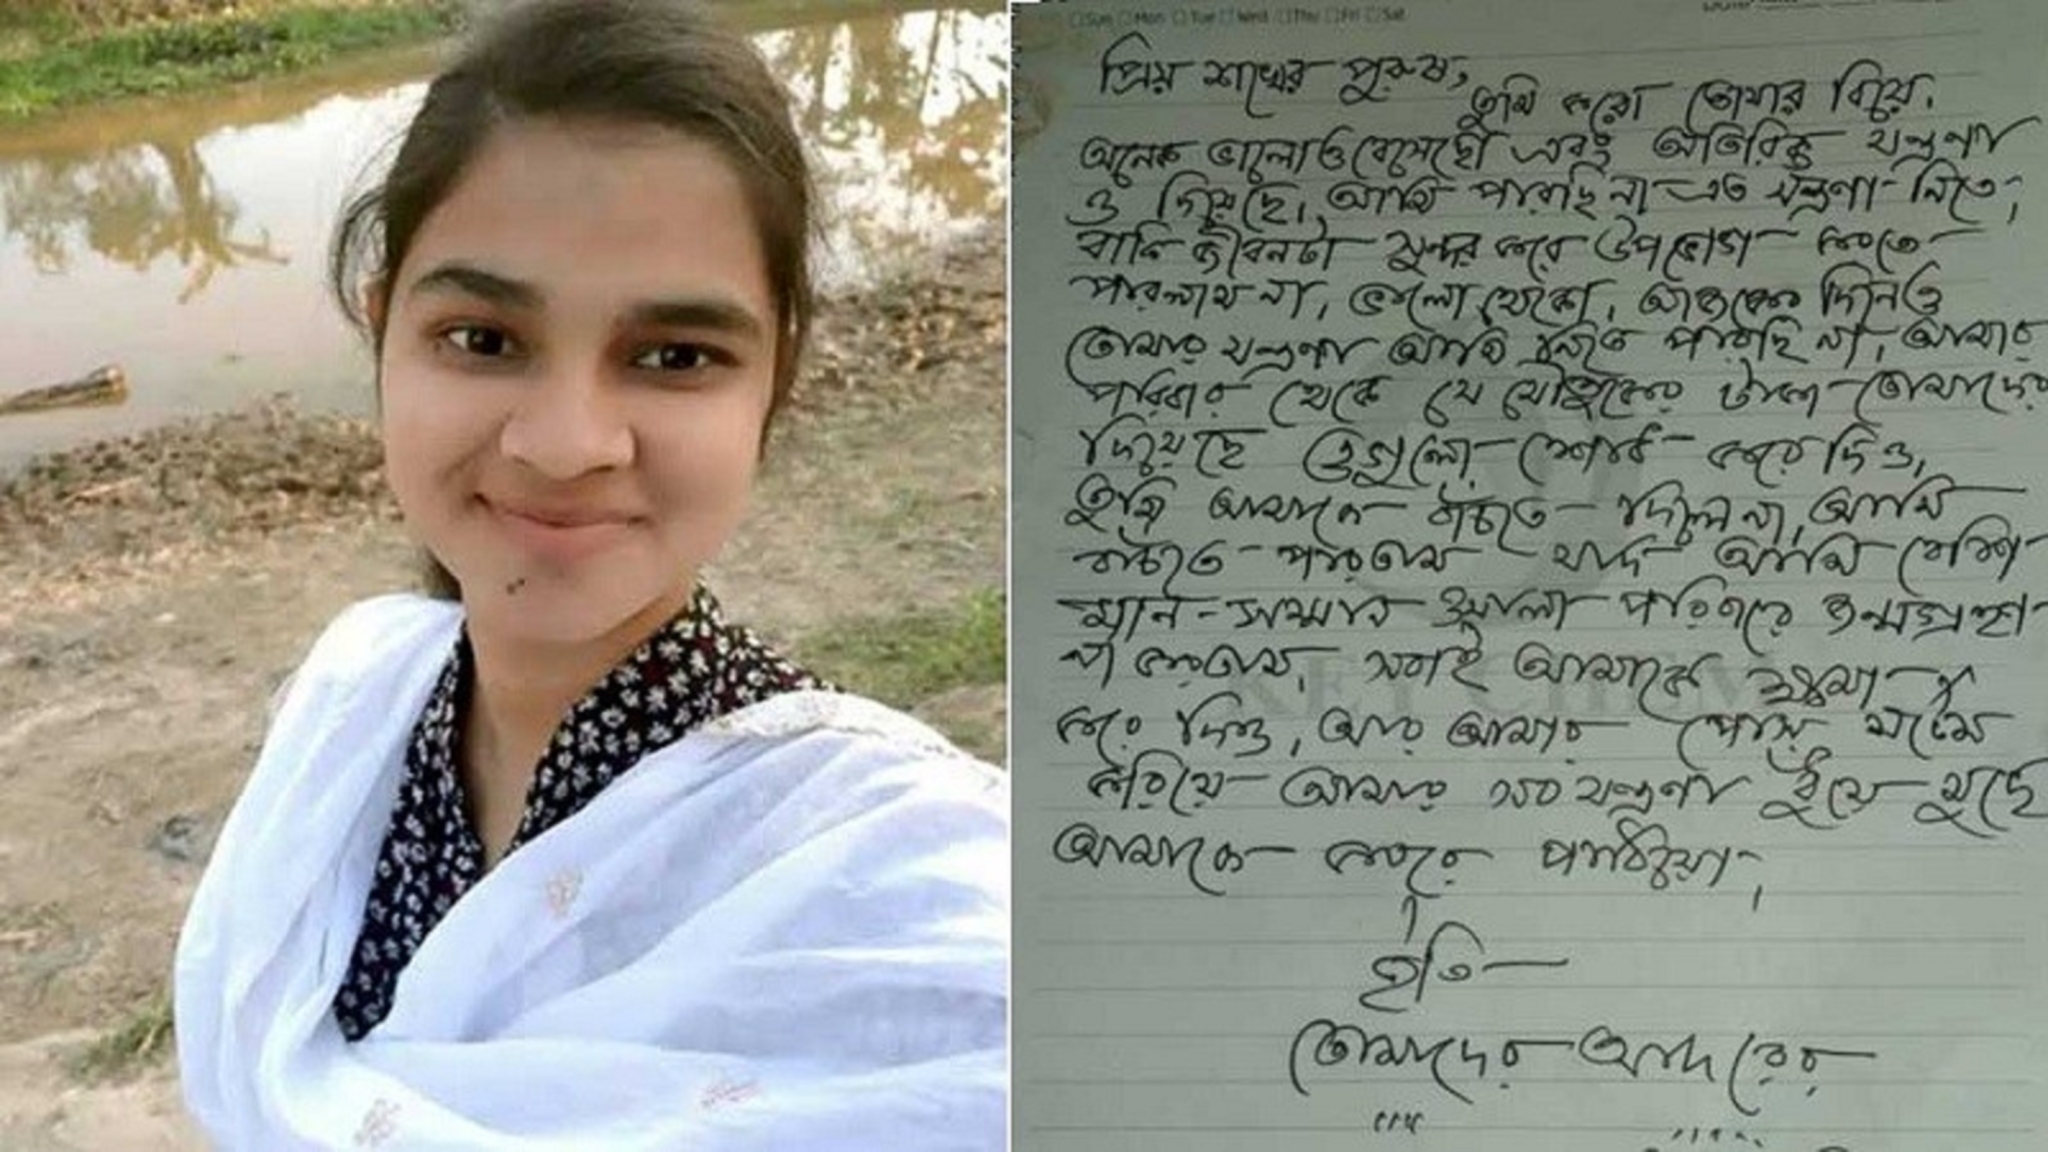 □Sun □Mon □Tue □Wed □Thu □Fri □Sat
প্রিয় শখের পুরুষ,
তুমি করো তোমার বিয়ে,
অনেক ভালোও বেসেছো এবং অতিরিক্ত যন্ত্রণা
ও দিয়েছে, আমি পারছি না এত যন্ত্রণা নিতে,
বাকি জীবনটা সুন্দর করে উপভোগ করতে
পারলাম না, ভালো থেকো, আজকের দিনেও
তোমার যন্ত্রণা আমি নিতে পারছি না, আমার
পরিবার থেকে যে যৌতুকের টাকা তোমাদের
দিয়েছে ওগুলো শোধ করে দিও,
তুমি আমাকে বাঁচতে দিলে না, আমি
বাঁচতে পারতাম যদি আমি বেশি
মান-সম্মান ওয়ালা পরিবারে জন্মগ্রহণ
না করতাম, সবাই আমাকে ক্ষমা
করে দিও, আর আমার পোস্ট মর্টেম
করিয়ে আমার যন্ত্রণা ধুঁয়ে মুছে
আমাকে কবরে পাঠিয়ো,
ইতি
তোমাদের আদরের